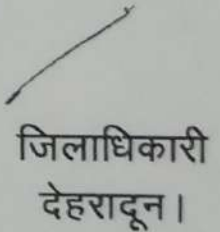 जिलाधिकारी
देहरादून।